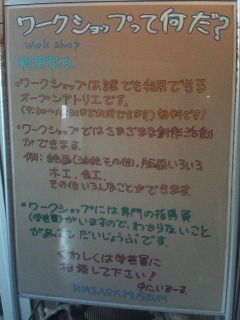 ワークショップって何だ?
work shop
利用案内
・ワークショップは誰でも利用できる
オープンアトリエです。
ができます
・ワークショップではさまざまな創作活動
ができます。
例：絵画(油絵その他)、版画いろいろ
木工、金工、
その他いろんなことができます
・ワークショップには専門の指導員
(学芸員)がいますので、わからないこと
があってもだいじょうぶです。
くわしくは学芸員に
相談して下さい!
中にいまーす
RIAS ARK MUSEUM